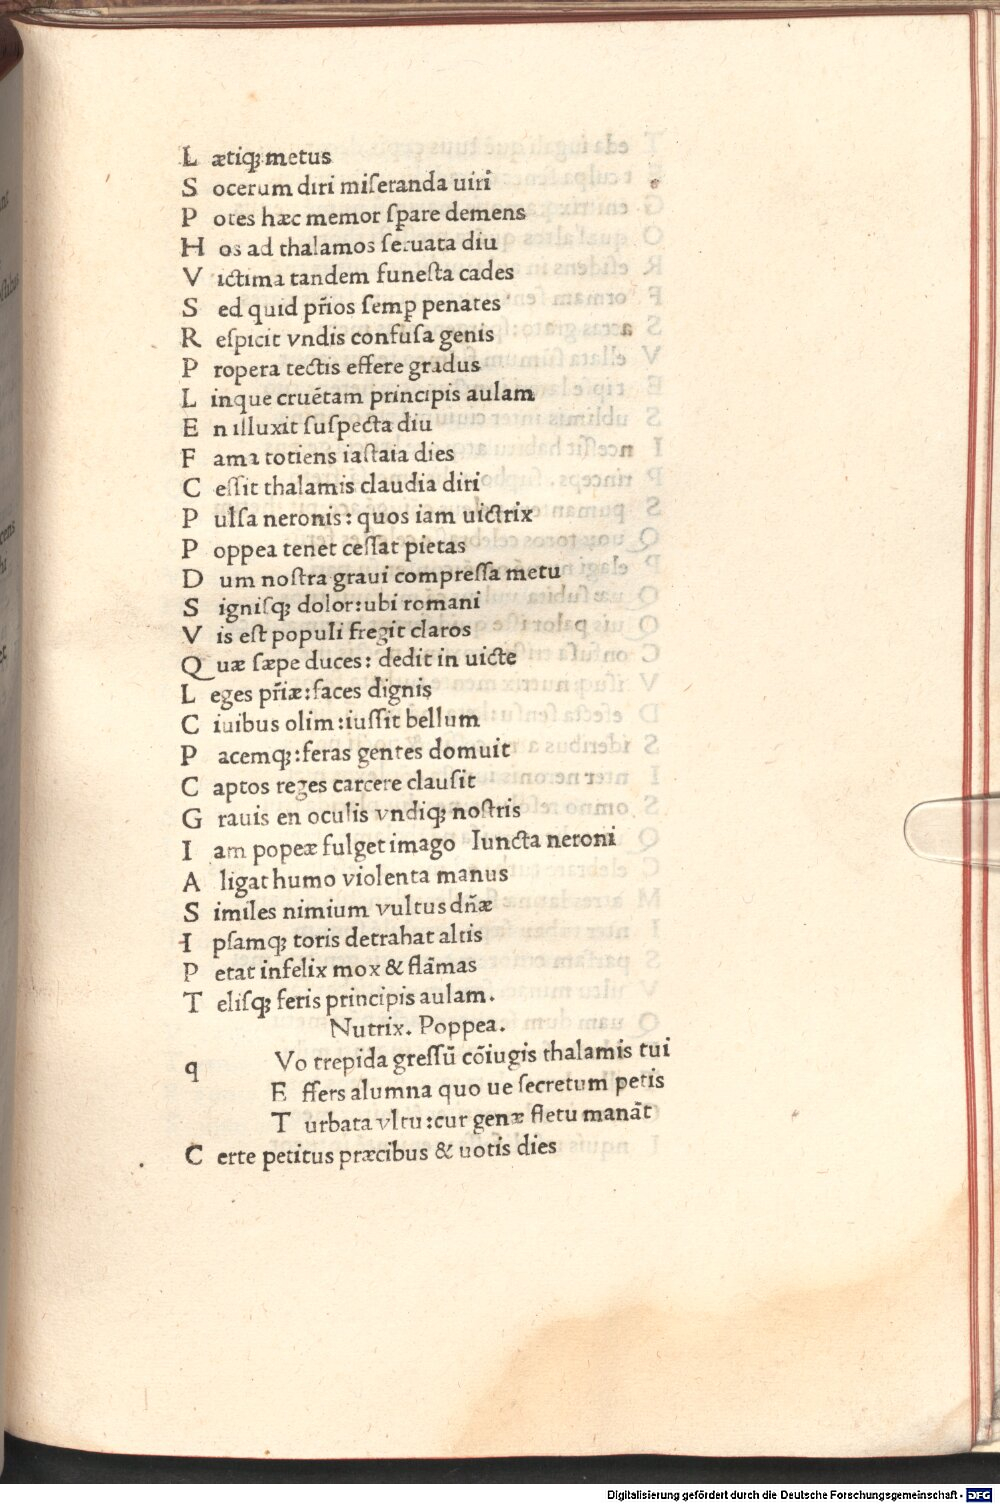 L ætiqꝫ metus
S ocerum diri miſeranda uiri
P otes hæc memor ſpare demens
H os ad thalamos ſeruata diu
V ictima tandem funeſta cades
S ed quid pr̃ios ſemp̱ penates
R eſpicit vndis confuſa genis
P ropera tectis effere gradus
L inque cruētam principis aulam
E n illuxit ſuſpecta diu
F ama totiens iaſtata dies
C eſſit thalamis claudia diri
P ulſa neronis: quos iam uictrix
P oppea tenet ceſſat pietas
D um noſtra graui compreſſa metu
S igniſqꝫ dolor: ubi romani
V is eſt populi fregit claros
Q uæ ſæpe duces: dedit in uicte
L eges pr̃iæ: faces dignis
C iuibus olim: iuſſit bellum
P acemqꝫ: feras gentes domuit
C aptos reges carcere clauſit
G rauis en oculis vndiqꝫ noſtris
I am popeæ fulget imago Iuncta neroni
A ligat humo violenta manus
S imiles nimium vultus dñæ
I pſamqꝫ toris detrahat altis
P etat infelix mox & flāmas
T eliſqꝫ feris principis aulam.
Nutrix. Poppea.
q Vo trepida greſſū cōiugis thalamis tui
E ffers alumna quo ue ſecretum petis
T urbata vltu: cur genæ fletu manāt
C erte petitus præcibus & uotis dies
Digitalisierung gefördert durch die Deutsche Forschungsgemeinschaft - DFG